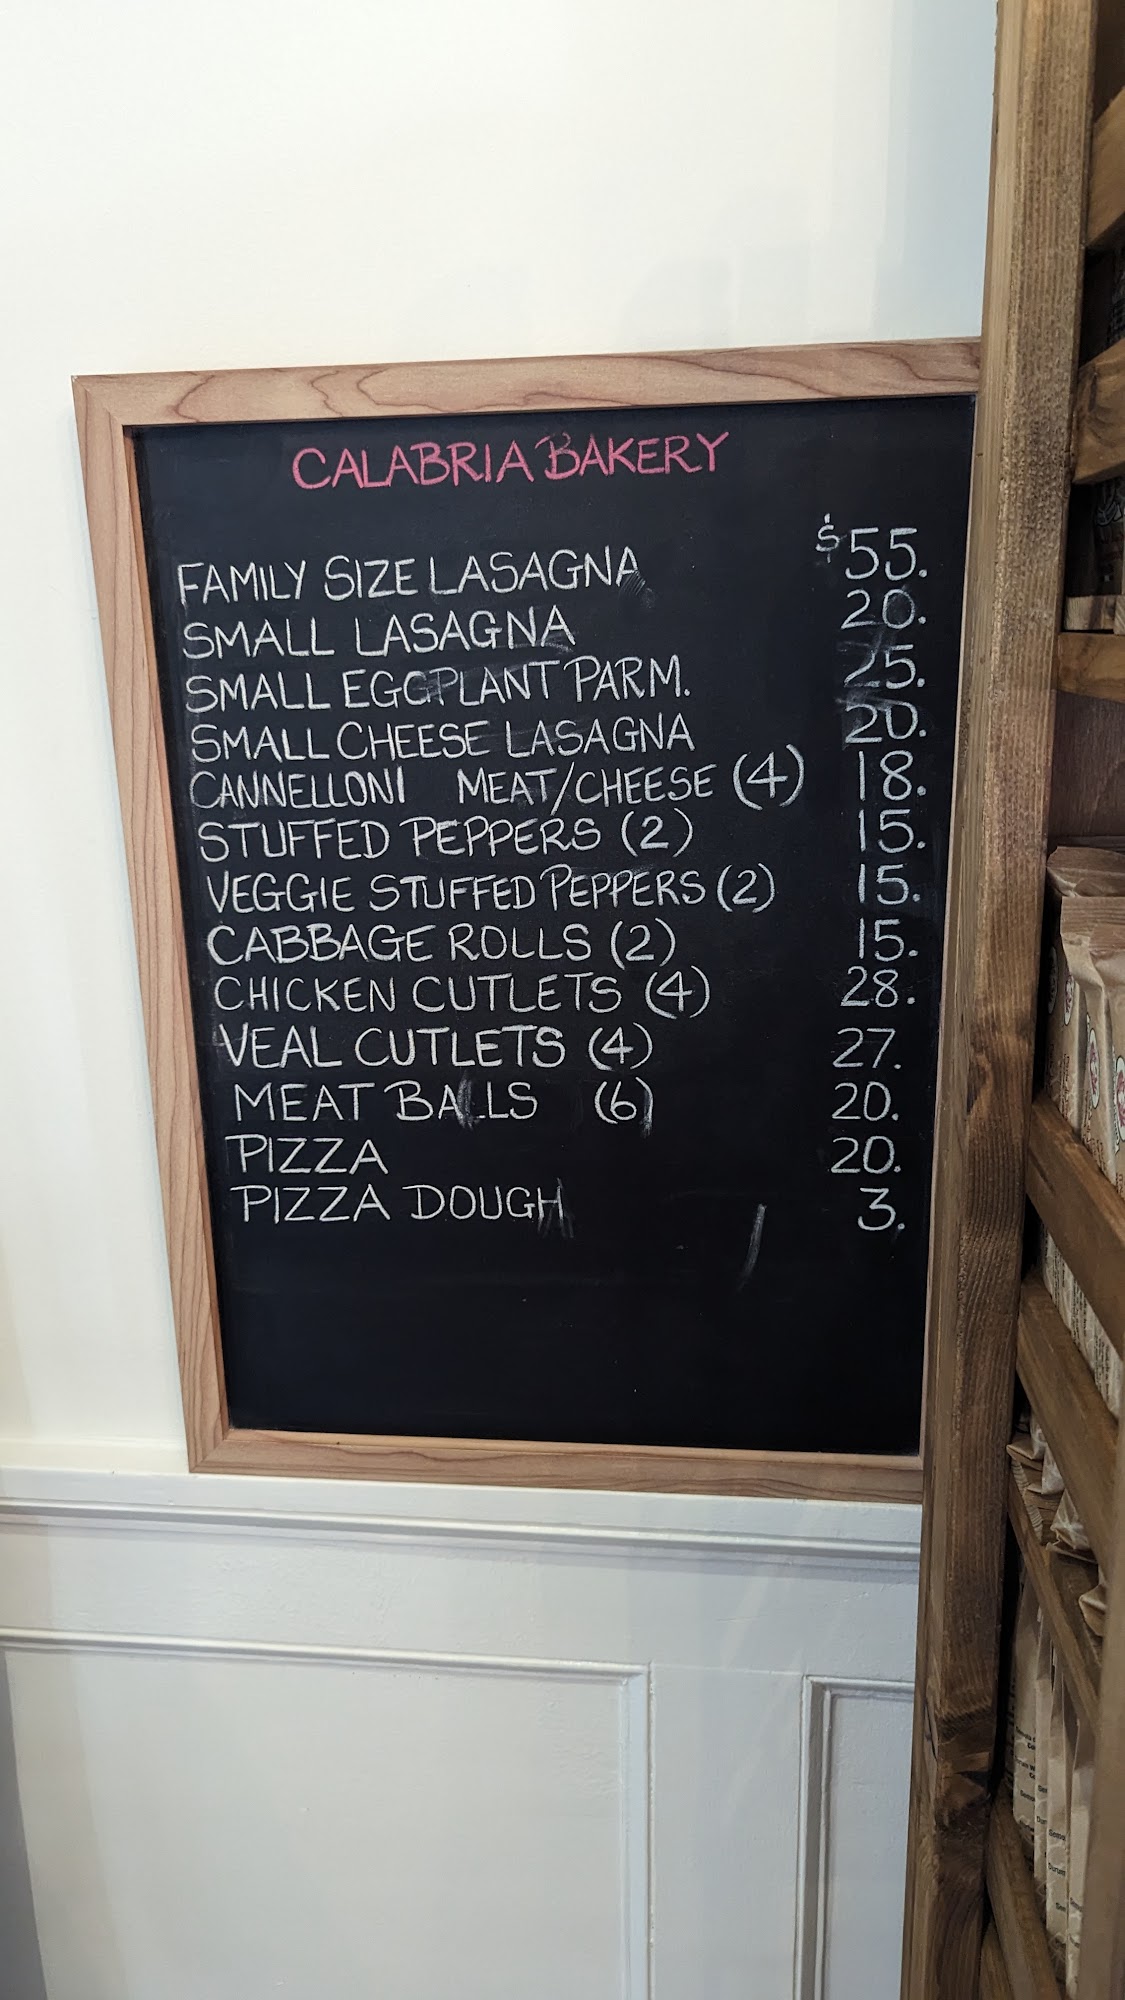 CALABRIA BAKERY
FAMILY SIZE LASAGNA $55.
SMALL LASAGNA 20.
SMALL EGGPLANT PARM. 25.
SMALL CHEESE LASAGNA 20.
CANNELLONI MEAT/CHEESE (4) 18.
STUFFED PEPPERS (2) 15.
VEGGIE STUFFED PEPPERS (2) 15.
CABBAGE ROLLS (2) 15.
CHICKEN CUTLETS (4) 28.
VEAL CUTLETS (4) 27.
MEAT BALLS (6) 20.
PIZZA 20.
PIZZA DOUGH 3.